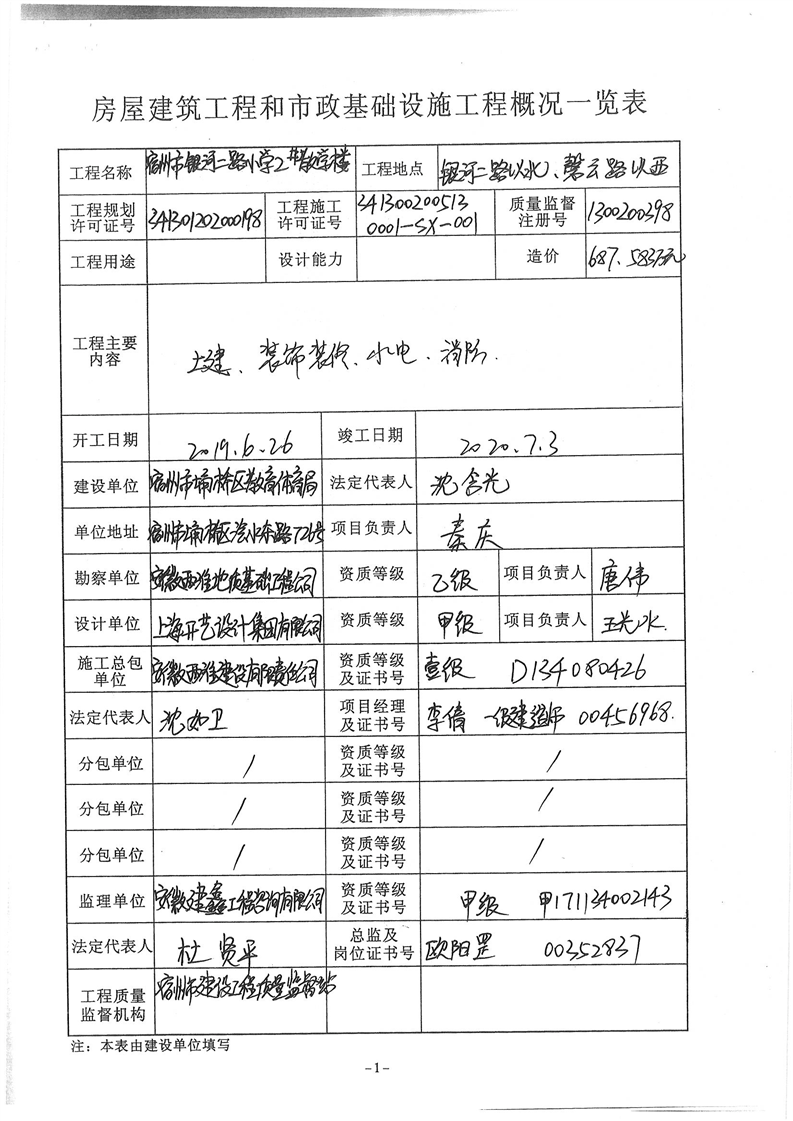 房屋建筑工程和市政基础设施工程概况一览表
工程名称 宿州市银河二路小学2#教学楼 工程地点 银河二路以北、磬云路以西
工程规划许可证号 341301202000198 工程施工许可证号 341300200513 0001-SX-001 质量监督注册号 1300200398
工程用途 设计能力 造价 687.583万元
工程主要内容 土建、装饰装修、水电、消防.
开工日期 2019.6.26 竣工日期 2020.7.3
建设单位 宿州市埇桥区教育体育局 法定代表人 沈含光
单位地址 宿州市埇桥区汴水东路726号 项目负责人 秦庆
勘察单位 安徽西淮地质基础工程公司 资质等级 乙级 项目负责人 唐伟
设计单位 上海开艺设计集团有限公司 资质等级 甲级 项目负责人 王光水
施工总包单位 安徽西淮建设有限责任公司 资质等级及证书号 壹级 D134080426
法定代表人 沈如卫 项目经理及证书号 李倩 一级建造师 00456968.
分包单位 / 资质等级及证书号 /
分包单位 / 资质等级及证书号 /
分包单位 / 资质等级及证书号 /
监理单位 安徽建鑫工程咨询有限公司 资质等级及证书号 甲级 甲171134002143
法定代表人 杜贤平 总监及岗位证书号 欧阳罡 00352837
工程质量监督机构 宿州市建设工程质量监督站
注：本表由建设单位填写
-1-